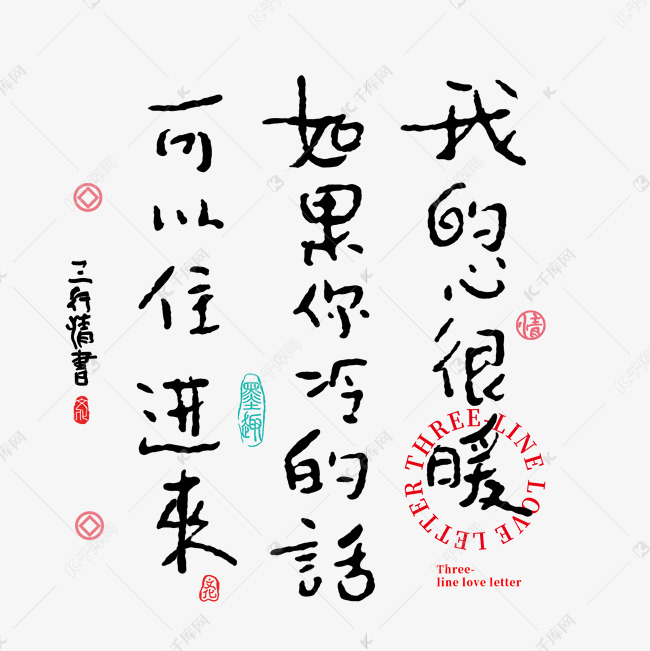 我的心很暖
如果你冷的話
可以住進來
三行情書
情
墨趣
THREE-LINE LOVE LETTER
Three-
line love letter
千库网